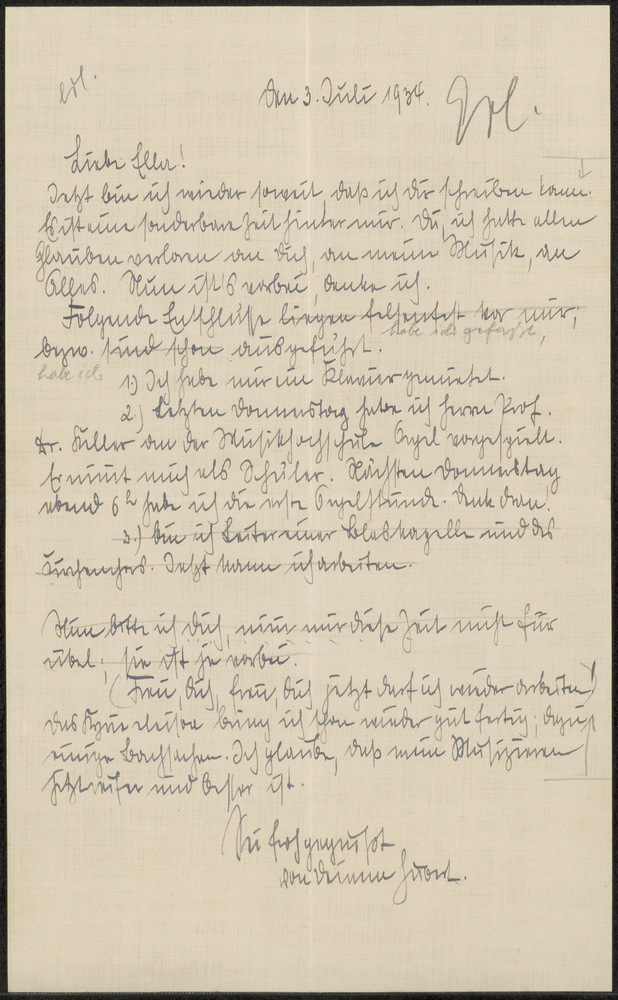 erl.
Den 3. Juli 1934.
Erl.
Liebe Ella!
Jetzt bin ich wieder soweit, daß ich dir schreiben kann.
Es ist eine sonderbare Zeit hinter mir. Du, ich hatte allen
Glauben verloren an Dich, an meine Musik, an
Alles. Nun ist's vorbei, denke ich.
Folgende Entschlüsse liegen felsenfest vor mir;
habe ich gefasst,
bezw. sind schon ausgeführt.
habe ich
1.) Ich habe mir ein Klavier gemietet.
2.) Letzten Donnerstag habe ich Herrn Prof.
Dr. Keller an der Musikhochschule Orgel vorgespielt.
Er nimmt mich als Schüler. Nächsten Donnerstag
abend 6h habe ich die erste Orgelstunde. Denk dran.
3.) bin ich Leiter einer Blaskapelle und des
Kirchenchors. Jetzt kann ich arbeiten.
Nun bitte ich Dich, nimm mir diese Zeit nicht für
übel; sie ist ja vorbei.
(Freu Dich, freu Dich, jetzt darf ich wieder arbeiten)
Das Kyrie eleison bring ich schon wieder gut fertig, dazu
einige Bachsachen. Ich glaube, daß mein Musizieren
jetzt reifer und besser ist.
Sei froh gegrüßt
von Deinem Hubert.